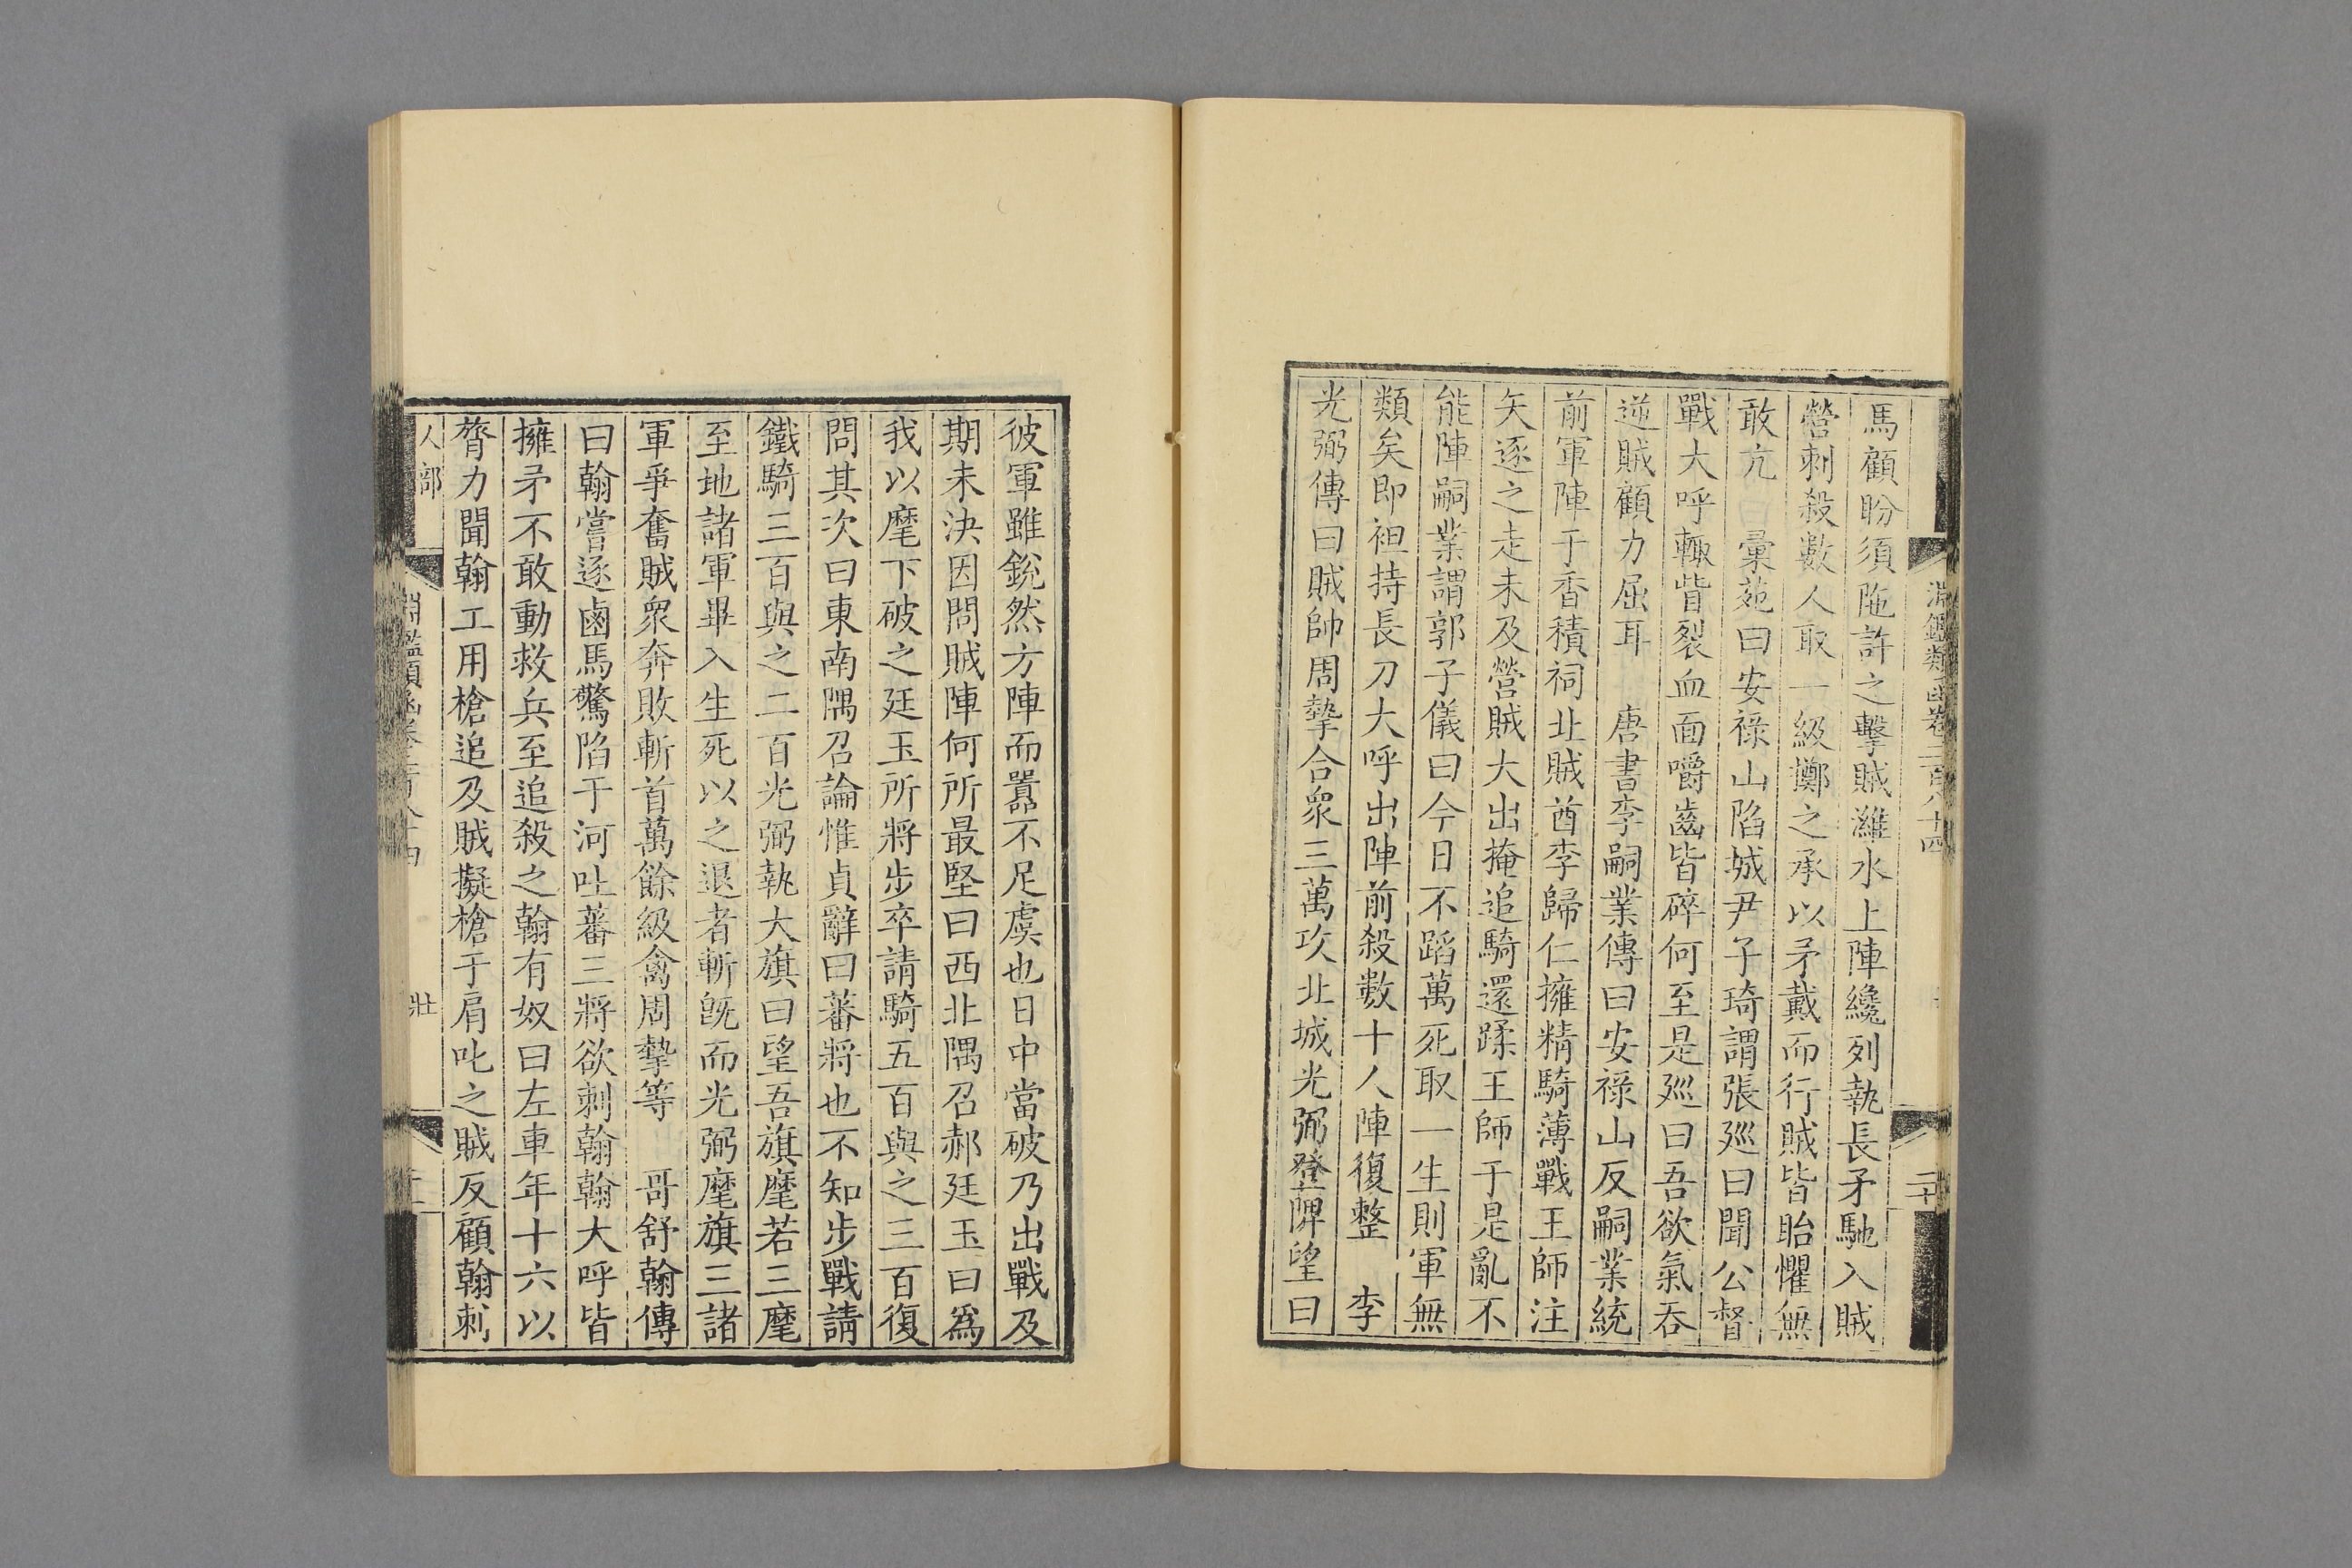 淵鑑類函卷二百八十四
馬顧盼須陁許之擊賊濰水上陣纔列執長矛馳入賊
營刺殺數人取一級擲之承以矛戴而行賊皆眙懼無
敢亢　彙苑曰安祿山陷城尹子琦謂張廵曰聞公督
戰大呼輒眥裂血面嚼齒皆碎何至是廵曰吾欲氣吞
逆賊顧力屈耳　唐書李嗣業傳曰安祿山反嗣業統
前軍陣于香積祠北賊酋李歸仁擁精騎薄戰王師注
矢逐之走未及營賊大出掩追騎還蹂王師于是亂不
能陣嗣業謂郭子儀曰今日不蹈萬死取一生則軍無
類矣即袒持長刀大呼出陣前殺數十人陣復整　李
光弼傳曰賊帥周摯合衆三萬攻北城光弼登陴望曰
彼軍雖銳然方陣而囂不足虞也日中當破乃出戰及
期未決因問賊陣何所最堅曰西北隅召郝廷玉曰爲
我以麾下破之廷玉所將步卒請騎五百與之三百復
問其次曰東南隅召論惟貞辭曰蕃將也不知步戰請
鐵騎三百與之二百光弼執大旗曰望吾旗麾若三麾
至地諸軍畢入生死以之退者斬旣而光弼麾旗三諸
軍爭奮賊衆奔敗斬首萬餘級禽周摯等　哥舒翰傳
曰翰嘗逐鹵馬驚陷于河吐蕃三將欲刺翰翰大呼皆
擁矛不敢動救兵至追殺之翰有奴曰左車年十六以
膂力聞翰工用槍追及賊擬槍于肩叱之賊反顧翰刺
人部　淵鑑類函卷二百八十四　壯